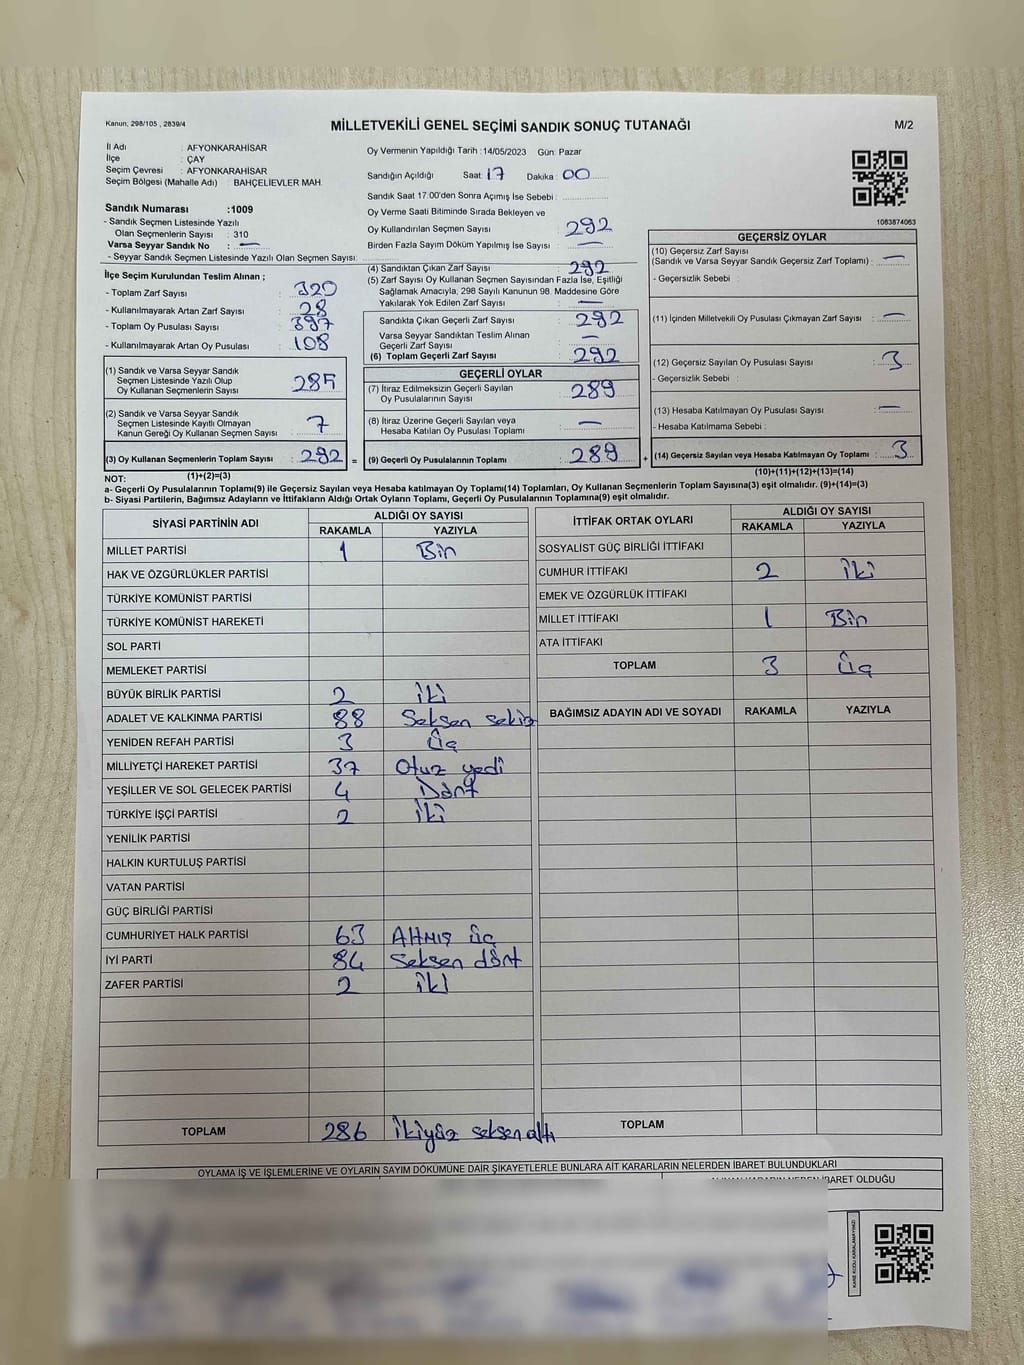 Kanun, 298/105 , 2839/4
MİLLETVEKİLİ GENEL SEÇİMİ SANDIK SONUÇ TUTANAĞI
M/2
İl Adı : AFYONKARAHİSAR
İlçe : ÇAY
Seçim Çevresi : AFYONKARAHİSAR
Seçim Bölgesi (Mahalle Adı) : BAHÇELİEVLER MAH.
Sandık Numarası :1009
- Sandık Seçmen Listesinde Yazılı
Olan Seçmenlerin Sayısı : 310
Varsa Seyyar Sandık No : —
- Seyyar Sandık Seçmen Listesinde Yazılı Olan Seçmen Sayısı:
Oy Vermenin Yapıldığı Tarih :14/05/2023 Gün: Pazar
Sandığın Açıldığı Saat :17 Dakika : 00
Sandık Saat 17:00'den Sonra Açımış İse Sebebi :
Oy Verme Saati Bitiminde Sırada Bekleyen ve
Oy Kullandırılan Seçmen Sayısı : 292
Birden Fazla Sayım Döküm Yapılmış İse Sayısı : —
1083874063
İlçe Seçim Kurulundan Teslim Alınan ;
- Toplam Zarf Sayısı : 320
- Kullanılmayarak Artan Zarf Sayısı : 28
- Toplam Oy Pusulası Sayısı : 397
- Kullanılmayarak Artan Oy Pusulası : 108
(1) Sandık ve Varsa Seyyar Sandık
Seçmen Listesinde Yazılı Olup
Oy Kullanan Seçmenlerin Sayısı : 285
(2) Sandık ve Varsa Seyyar Sandık
Seçmen Listesinde Kayıtlı Olmayan
Kanun Gereği Oy Kullanan Seçmen Sayısı : 7
(3) Oy Kullanan Seçmenlerin Toplam Sayısı : 292
(1)+(2)=(3)
(4) Sandıktan Çıkan Zarf Sayısı : 292
(5) Zarf Sayısı Oy Kullanan Seçmen Sayısından Fazla İse, Eşitliği
Sağlamak Amacıyla, 298 Sayılı Kanunun 98. Maddesine Göre
Yakılarak Yok Edilen Zarf Sayısı : —
Sandıkta Çıkan Geçerli Zarf Sayısı : 292
Varsa Seyyar Sandıktan Teslim Alınan
Geçerli Zarf Sayısı : —
(6) Toplam Geçerli Zarf Sayısı : 292
GEÇERLİ OYLAR
(7) İtiraz Edilmeksizin Geçerli Sayılan
Oy Pusulalarının Sayısı : 289
(8) İtiraz Üzerine Geçerli Sayılan veya
Hesaba Katılan Oy Pusulası Toplamı : —
= (9) Geçerli Oy Pusulalarının Toplamı : 289 +
GEÇERSİZ OYLAR
(10) Geçersiz Zarf Sayısı
(Sandık ve Varsa Seyyar Sandık Geçersiz Zarf Toplamı) : —
- Geçersizlik Sebebi :
(11) İçinden Milletvekili Oy Pusulası Çıkmayan Zarf Sayısı : —
(12) Geçersiz Sayılan Oy Pusulası Sayısı : 3
- Geçersizlik Sebebi :
(13) Hesaba Katılmayan Oy Pusulası Sayısı : —
- Hesaba Katılmama Sebebi :
(14) Geçersiz Sayılan veya Hesaba Katılmayan Oy Toplamı : 3
(10)+(11)+(12)+(13)=(14)
NOT:
a- Geçerli Oy Pusulalarının Toplamı(9) ile Geçersiz Sayılan veya Hesaba katılmayan Oy Toplamı(14) Toplamları, Oy Kullanan Seçmenlerin Toplam Sayısına(3) eşit olmalıdır. (9)+(14)=(3)
b- Siyasi Partilerin, Bağımsız Adayların ve İttifakların Aldığı Ortak Oyların Toplamı, Geçerli Oy Pusulalarının Toplamına(9) eşit olmalıdır.
SİYASİ PARTİNİN ADI ALDIĞI OY SAYISI
RAKAMLA YAZIYLA
MİLLET PARTİSİ 1 Bir
HAK VE ÖZGÜRLÜKLER PARTİSİ
TÜRKİYE KOMÜNİST PARTİSİ
TÜRKİYE KOMÜNİST HAREKETİ
SOL PARTİ
MEMLEKET PARTİSİ
BÜYÜK BİRLİK PARTİSİ 2 İki
ADALET VE KALKINMA PARTİSİ 88 Seksen sekiz
YENİDEN REFAH PARTİSİ 3 Üç
MİLLİYETÇİ HAREKET PARTİSİ 37 Otuz yedi
YEŞİLLER VE SOL GELECEK PARTİSİ 4 Dört
TÜRKİYE İŞÇİ PARTİSİ 2 İki
YENİLİK PARTİSİ
HALKIN KURTULUŞ PARTİSİ
VATAN PARTİSİ
GÜÇ BİRLİĞİ PARTİSİ
CUMHURİYET HALK PARTİSİ 63 Altmış üç
İYİ PARTİ 84 Seksen dört
ZAFER PARTİSİ 2 İki
TOPLAM 286 İkiyüz seksen altı
İTTİFAK ORTAK OYLARI ALDIĞI OY SAYISI
RAKAMLA YAZIYLA
SOSYALİST GÜÇ BİRLİĞİ İTTİFAKI
CUMHUR İTTİFAKI 2 İki
EMEK VE ÖZGÜRLÜK İTTİFAKI
MİLLET İTTİFAKI 1 Bir
ATA İTTİFAKI
TOPLAM 3 Üç
BAĞIMSIZ ADAYIN ADI VE SOYADI RAKAMLA YAZIYLA
TOPLAM
OYLAMA İŞ VE İŞLEMLERİNE VE OYLARIN SAYIM DÖKÜMÜNE DAİR ŞİKAYETLERLE BUNLARA AİT KARARLARIN NELERDEN İBARET BULUNDUKLARI
İBARET OLDUĞU
KARE KODU KARALAMAYINIZ!